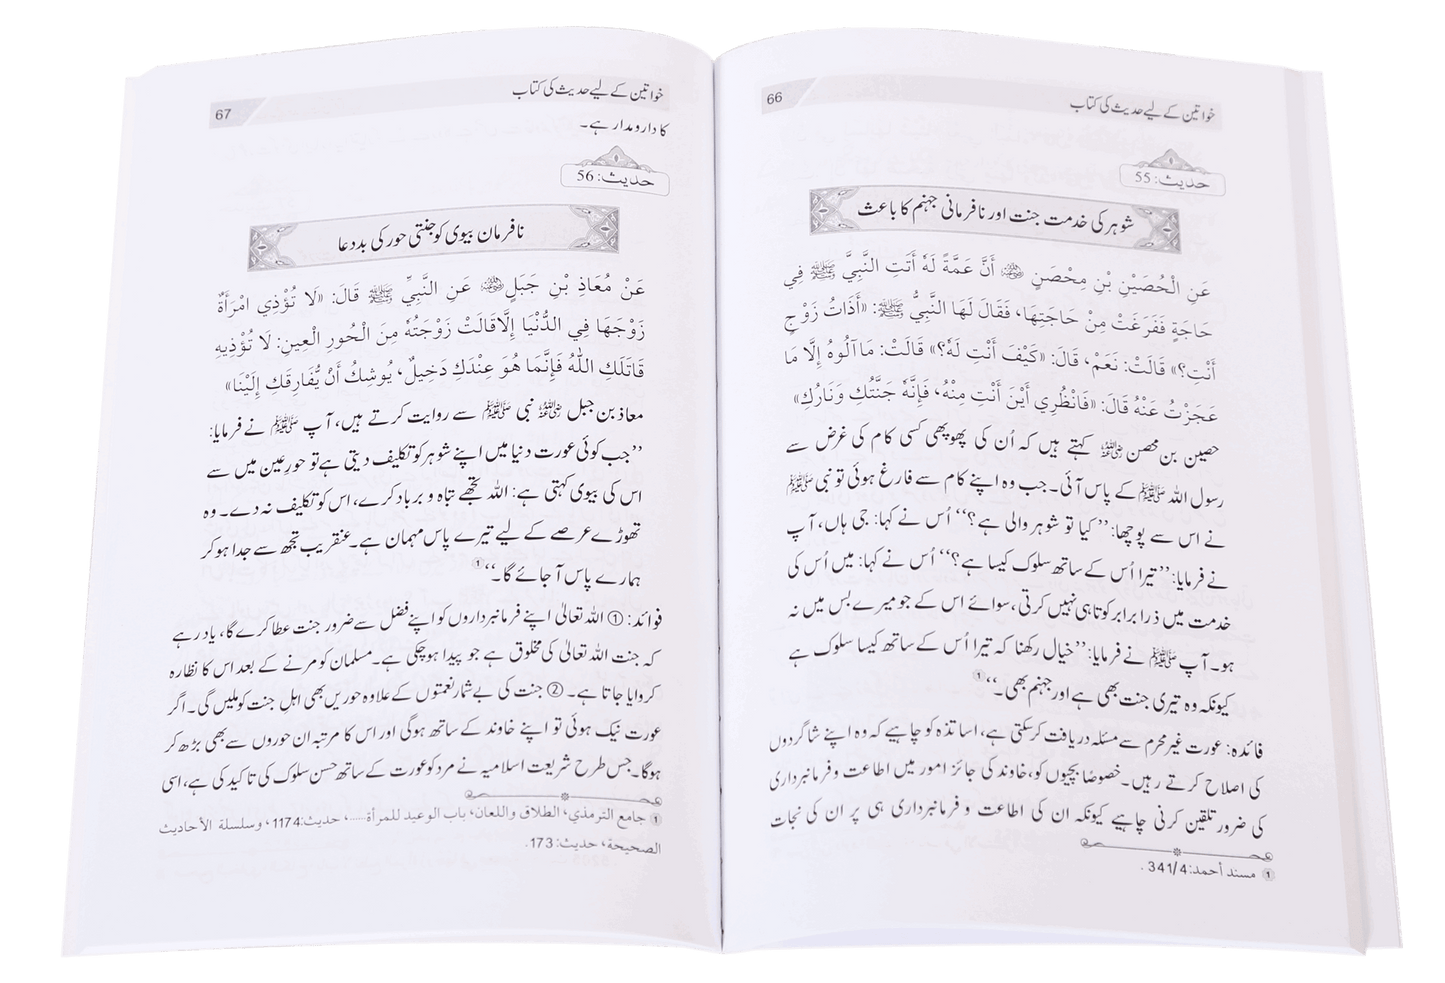 66
خواتین کے لیے حدیث کی کتاب
حدیث: 55
شوہر کی خدمت جنت اور نافرمانی جہنم کا باعث
عَنِ الْحُصَيْنِ بْنِ مِحْصَنٍ ؓ أَنَّ عَمَّةً لَهُ أَتَتِ النَّبِيَّ ﷺ فِي
حَاجَةٍ فَفَرَغَتْ مِنْ حَاجَتِهَا، فَقَالَ لَهَا النَّبِيُّ ﷺ: «أَذَاتُ زَوْجٍ
أَنْتِ؟» قَالَتْ: نَعَمْ، قَالَ: «كَيْفَ أَنْتِ لَهُ؟» قَالَتْ: مَا آلُوهُ إِلَّا مَا
عَجَزْتُ عَنْهُ قَالَ: «فَانْظُرِي أَيْنَ أَنْتِ مِنْهُ، فَإِنَّهُ جَنَّتُكِ وَنَارُكِ»
حصین بن محصن ؓ کہتے ہیں کہ اُن کی پھوپھی کسی کام کی غرض سے
رسول اللہ ﷺ کے پاس آئی۔ جب وہ اپنے کام سے فارغ ہوئی تو نبی ﷺ
نے اس سے پوچھا: ’’کیا تو شوہر والی ہے؟‘‘ اُس نے کہا: جی ہاں، آپ
نے فرمایا: ’’تیرا اُس کے ساتھ سلوک کیسا ہے؟‘‘ اُس نے کہا: میں اُس کی
خدمت میں ذرا برابر کوتاہی نہیں کرتی، سوائے اس کے جو میرے بس میں نہ
ہو۔ آپ ﷺ نے فرمایا: ’’خیال رکھنا کہ تیرا اُس کے ساتھ کیسا سلوک ہے
کیونکہ وہ تیری جنت بھی ہے اور جہنم بھی۔‘‘ ①
فائدہ: عورت غیر محرم سے مسئلہ دریافت کرسکتی ہے، اساتذہ کو چاہیے کہ وہ اپنے شاگردوں
کی اصلاح کرتے رہیں۔ خصوصًا بچیوں کو، خاوند کی جائز امور میں اطاعت و فرمانبرداری
کی ضرور تلقین کرنی چاہیے کیونکہ ان کی اطاعت و فرمانبرداری ہی پر ان کی نجات
① مسند أحمد: 341/4 .
67
خواتین کے لیے حدیث کی کتاب
کا دارومدار ہے۔
حدیث: 56
نافرمان بیوی کو جنتی حور کی بددعا
عَنْ مُعَاذِ بْنِ جَبَلٍ ؓ عَنِ النَّبِيِّ ﷺ قَالَ: «لَا تُؤْذِي امْرَأَةٌ
زَوْجَهَا فِي الدُّنْيَا إِلَّا قَالَتْ زَوْجَتُهُ مِنَ الْحُورِ الْعِينِ: لَا تُؤْذِيهِ
قَاتَلَكِ اللَّهُ فَإِنَّمَا هُوَ عِنْدَكِ دَخِيلٌ، يُوشِكُ أَنْ يُّفَارِقَكِ إِلَيْنَا»
معاذ بن جبل ؓ نبی ﷺ سے روایت کرتے ہیں، آپ ﷺ نے فرمایا:
’’جب کوئی عورت دنیا میں اپنے شوہر کو تکلیف دیتی ہے تو حورِ عین میں سے
اس کی بیوی کہتی ہے: اللہ تجھے تباہ و برباد کرے، اس کو تکلیف نہ دے۔ وہ
تھوڑے عرصے کے لیے تیرے پاس مہمان ہے۔ عنقریب تجھ سے جدا ہو کر
ہمارے پاس آ جائے گا۔‘‘ ①
فوائد: ① اللہ تعالیٰ اپنے فرمانبرداروں کو اپنے فضل سے ضرور جنت عطا کرے گا، یاد رہے
کہ جنت اللہ تعالیٰ کی مخلوق ہے جو پیدا ہوچکی ہے۔ مسلمان کو مرنے کے بعد اس کا نظارہ
کروایا جاتا ہے۔ ② جنت کی بے شمار نعمتوں کے علاوہ حوریں بھی اہلِ جنت کو ملیں گی۔ اگر
عورت نیک ہوئی تو اپنے خاوند کے ساتھ ہوگی اور اس کا مرتبہ ان حوروں سے بھی بڑھ کر
ہوگا۔ جس طرح شریعت اسلامیہ نے مرد کو عورت کے ساتھ حسن سلوک کی تاکید کی ہے، اسی
① جامع الترمذي، الطلاق واللعان، باب الوعيد للمرأة.....، حديث: 1174، وسلسلة الأحاديث
الصحيحة، حديث: 173.